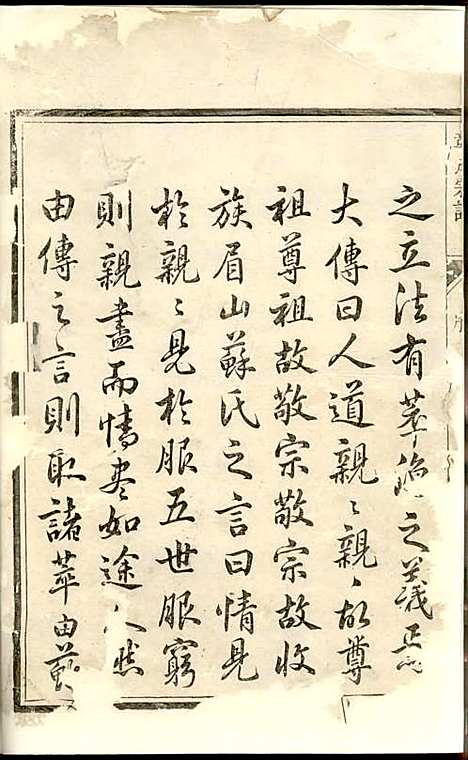 之立法有萃渙之義焉
大傳曰人道親〻親〻故尊
祖尊祖故敬宗敬宗故收
族眉山蘇氏之言曰情見
於親〻見於服五世服窮
則親盡而情盡如途人然
由傳之言則取諸萃由蘇